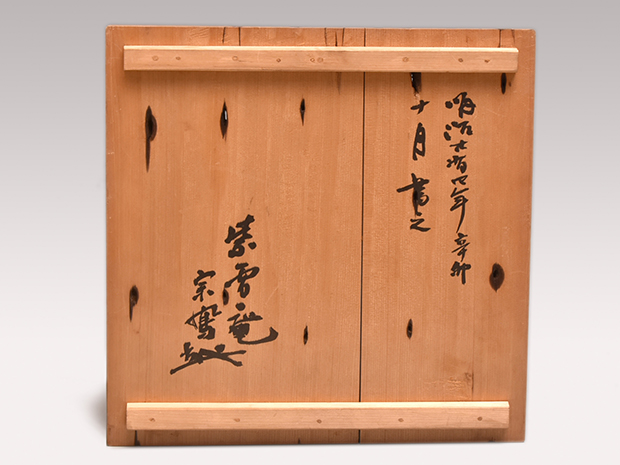 明治廿有四年 辛卯
十月 書之
紫雲庵
宗